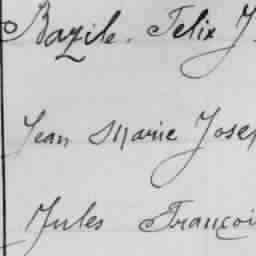 Bazile. Felix J
Jean Marie Josep
Jules Françoi